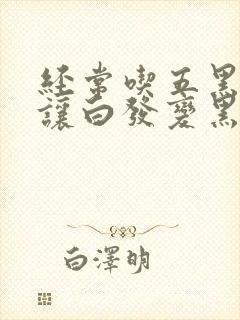 經常喫五黑
讓白發變黑
白澤明